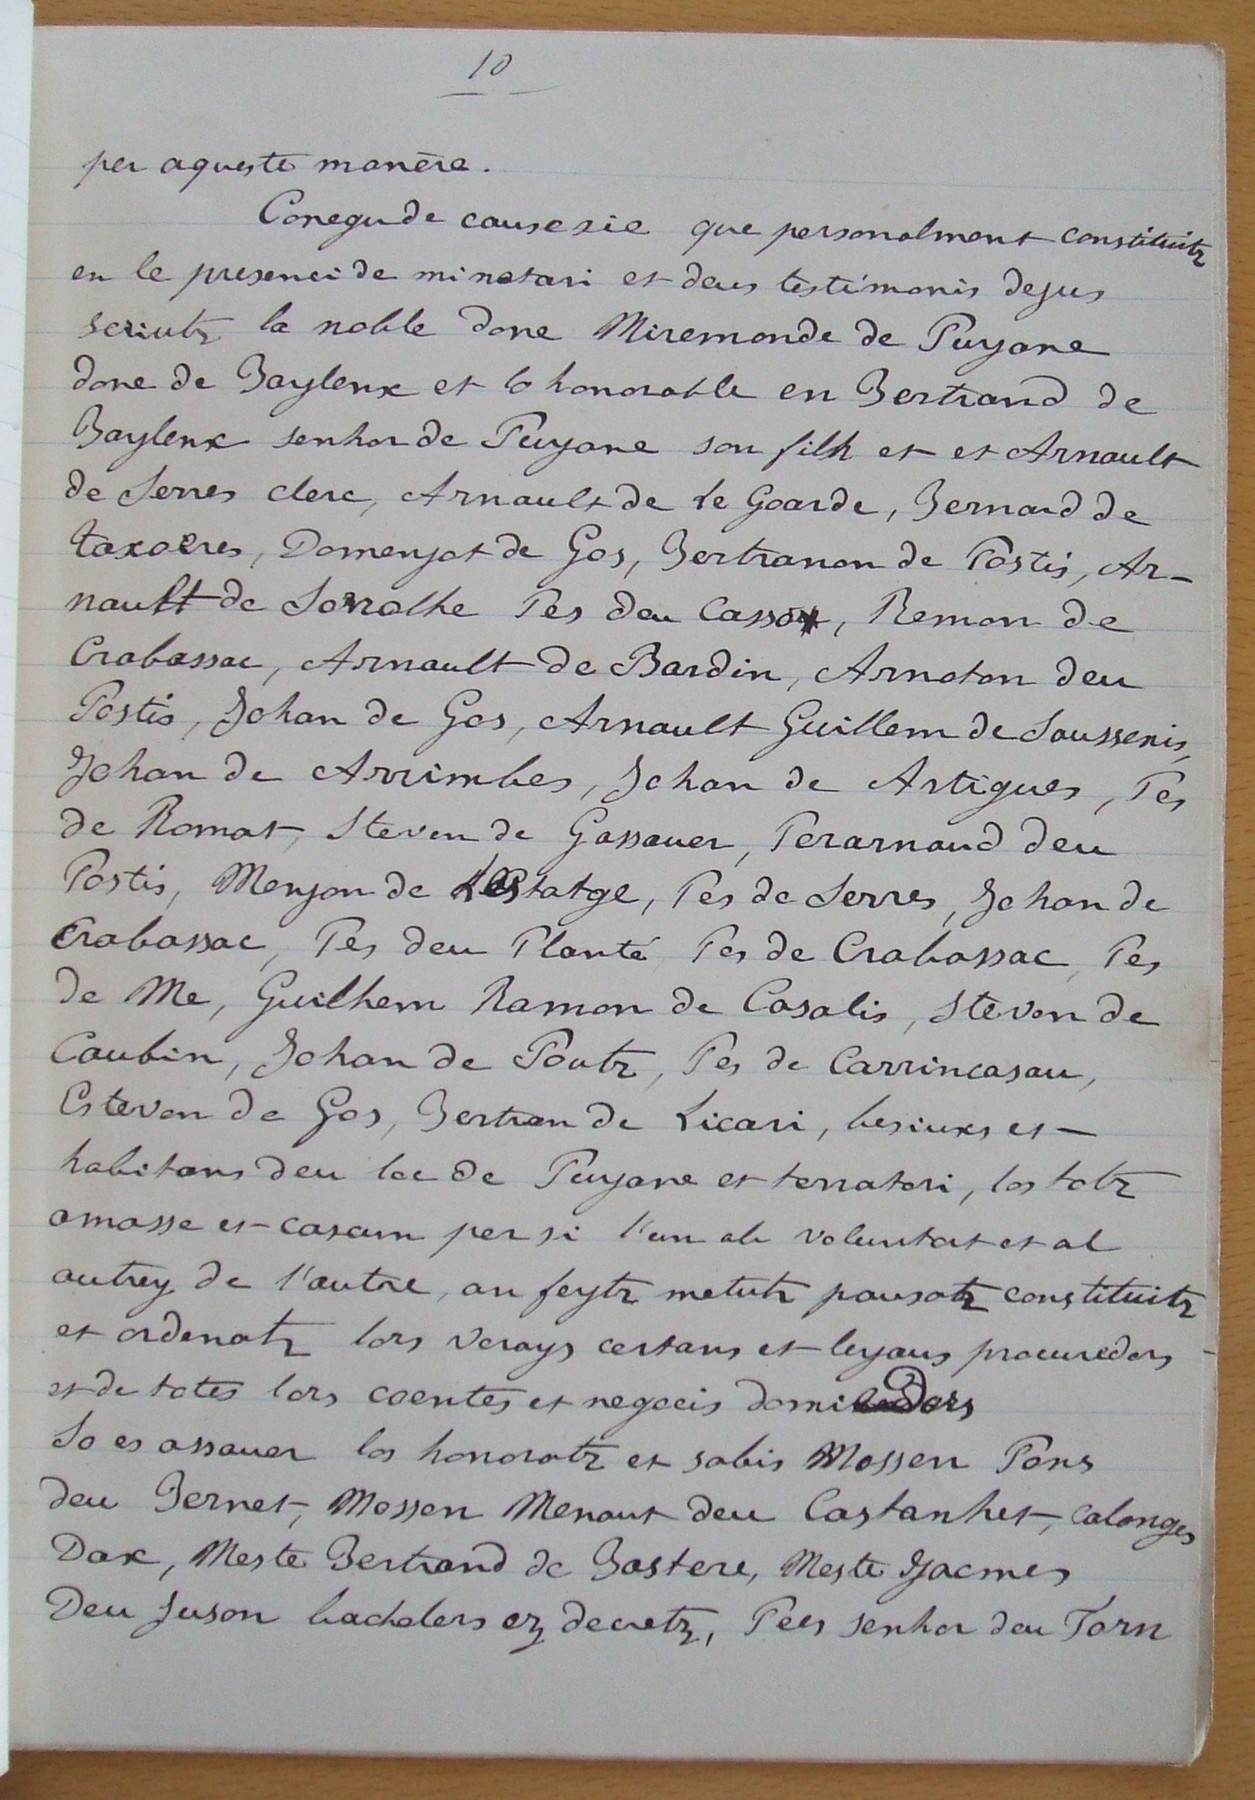 10
per aqueste manère.
Conegude causesie que personalment constituitz
en le presenci de mi notari et deus testimonis dejus
scriutz la noble done Miremonde de Puyane
done de Baylenx et lo honorable en Bertrand de
Baylenx senhor de Puyane son filh et et Arnault
de Serres clerc, Arnault de le Goarde, Bernard de
taxoeres, Domenjot de Gos, Bertranon de Postis, Ar-
nault de Sorrolhe Pes deu Casso, Remon de
Crabassac, Arnault de Bardin, Arnoton deu
Postis, Johan de Gos, Arnault Guillem de Saussenis,
Johan de Arrimbes, Johan de Artigues, Pes
de Romat, Steven de Gassauer, Perarnaud deu
Postis, Menjon de Lestatge, Pes de Serres, Johan de
Crabassac, Pes deu Planté Pes de Crabassac, Pes
de Me, Guilhem Ramon de Casalis, Steven de
Caubin, Johan de Poutz, Pes de Carrincasau,
Esteven de Gos, Bertran de Licari, besiuxs et
habitans deu loc de Puyane et terratori, los totz
amasse et cascun per si l'un ab voluntat et al
autrey de l'autre, an feytz metutz pausatz constituitz
et ordenatz lors verays certans et leyaus procuredors
et de totes lors coentes et negocis domi dors
So es assauer los honoratz et sabis Mossen Pons
deu Bernet, Mossen Menaut deu Castanhet, calonges
Dax, Meste Bertrand de Bastere, Meste Jacmes
Deu Juson bachelers ez decretz, Pees senhor deu Torn